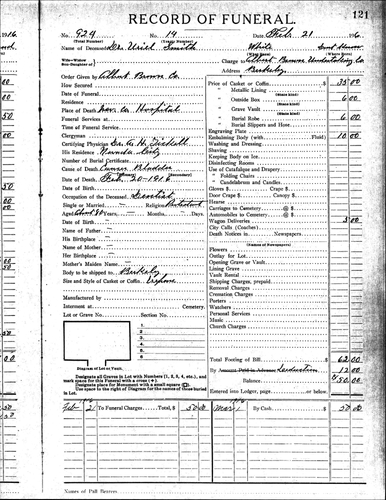 121
RECORD OF FUNERAL.
No. 924 No. 14 Date Feb. 21 1916
(Total Number) (Yearly Number)
Name of Deceased Dr. Uriah Smith White
Wife—Widow
Son—Daughter of
Charge to Albert Brown Undertaking Co.
Order Given by Albert Brown Co.
Address Berkeley
How Secured
Date of Funeral
Residence
Place of Death Hospital
Funeral Services at
Time of Funeral Service
Clergyman
Certifying Physician Dr. A. H.
His Residence
Number of Burial Certificate
Cause of Death Cancer Bladder
Date of Death Feb. 20-1916
Date of Birth
Occupation of the Deceased Dentist
Single or Married Religion
Aged About 80 Years, Months, Days.
Date of Birth
Name of Father
His Birthplace
Name of Mother
Her Birthplace
Mother's Maiden Name
Body to be shipped to Berkeley
Size and Style of Casket or Coffin
Manufactured by
Interment at Cemetery.
Lot or Grave No. Section No.
1
2
3
4
5
6
Diagram of Lot or Vault.
Designate all Graves in Lot with Numbers (1, 2, 3, 4, etc.), and mark space for this Funeral with a cross (+).
Designate place for Monument with a small square (□).
Use the right of Diagram for the names of those buried in Lot.
Price of Casket or Coffin $ 35 00
" Metallic Lining
" Outside Box 6 00
" Grave Vault
" Burial Robe 6 00
" Burial Slippers and Hose
Engraving Plate
Embalming Body (with Fluid) 10 00
Washing and Dressing
Shaving
Keeping Body on Ice
Disinfecting Rooms
Use of Catafalque and Drapery
" Folding Chairs
" Candelabrum and Candles
Gloves $ Crape $
Door Crape $ Candy $
Hearse
Carriages to Cemetery @ $
Automobiles to Cemetery @ $
Wagon Deliveries 5 00
City Calls (Coaches)
Death Notices in Newspapers
(Names of Newspapers)
Flowers
Outlay for Lot
Opening Grave or Vault
Lining Grave
Vault Rental
Shipping Charges, prepaid
Removal Charges
Cremation Charges
Porters
Watchers
Personal Services
Music
Church Charges
Total Footing of Bill $ 62 00
By Amount Paid in Advance Deduction 12 00
Balance 50 00
Entered into Ledger, page or below.
1916 Feb 21 To Funeral Charges Total, $ 50 00 1916 Mar 1 By Cash $ 50 00
Names of Pall Bearers